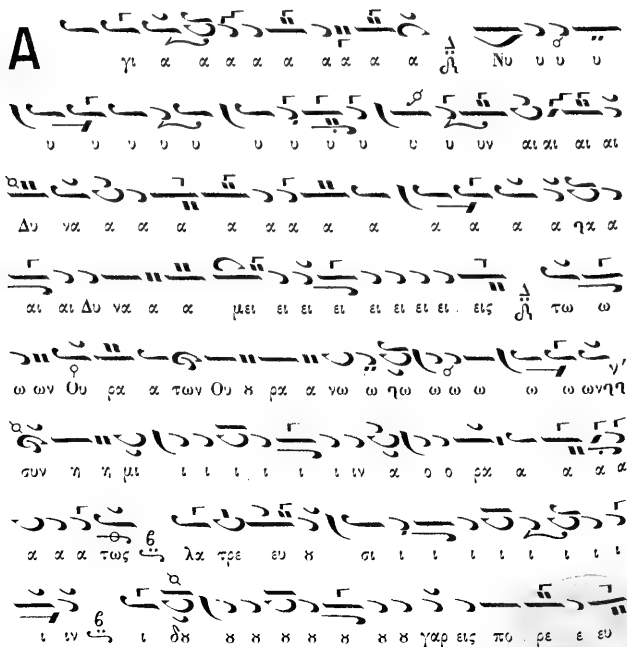 Α γι α α α α α α α α α Νυ υ υ υ
υ υ υ υ υ υ υ υ υ υ υ υν αι αι αι αι
Δυ να α α α α α α α α α α α α ηα α
αι αι Δυ να α α μει ει ει ει ει ει ει ει . εις τω ω
ω ων Ου ρα α των Ου ȣ ρα α νω ω ηω ω ω ω ω ω ωνηη
συν η η μι ι ι ι ι ι ι ιν α ο ο ρα α α α α
α α α τως λα τρε ευ ȣ σι ι ι ι ι ι ι ι ι
ι ιν ι δȣ ȣ ȣ ȣ ȣ ȣ ȣ ȣ ȣ γαρ εις πο . ρε ε ευ